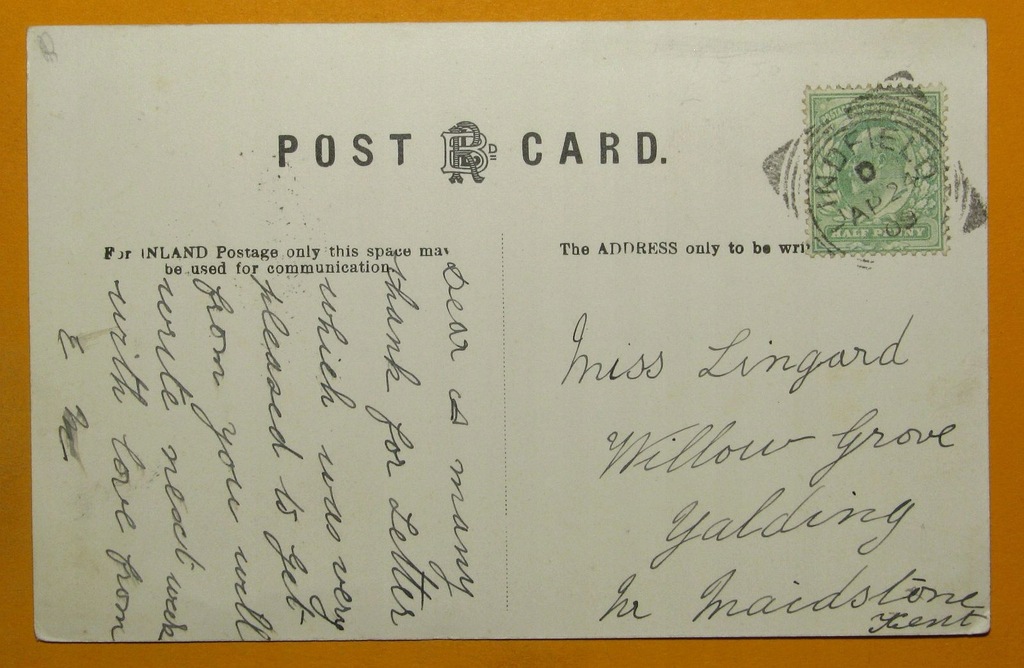 POST CARD.
For INLAND Postage only this space may
be used for communication.
The ADDRESS only to be wri
INDFIELD
D
AP 24
09
HALF PENNY
Dear A many
thank for Letter
which was very
pleased to get
from you will
write next week
with love from
E M
Miss Lingard
Willow Grove
Yalding
Nr Maidstone
Kent